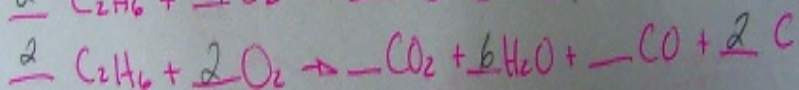 C₂H₆ +
2 C₂H₆ + 2 O₂ → _ CO₂ + 6 H₂O + _ CO + 2 C